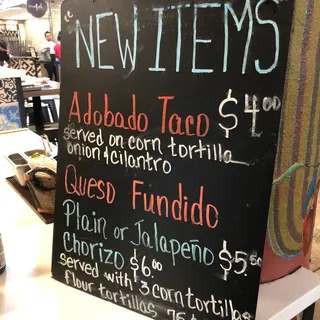 "NEW ITEMS"
Adobado Taco $4.00
served on corn tortilla
onion & cilantro
Queso Fundido
Plain or Jalapeño $5.50
Chorizo $6.00
served with 3 corn tortillas
flour tortillas 75